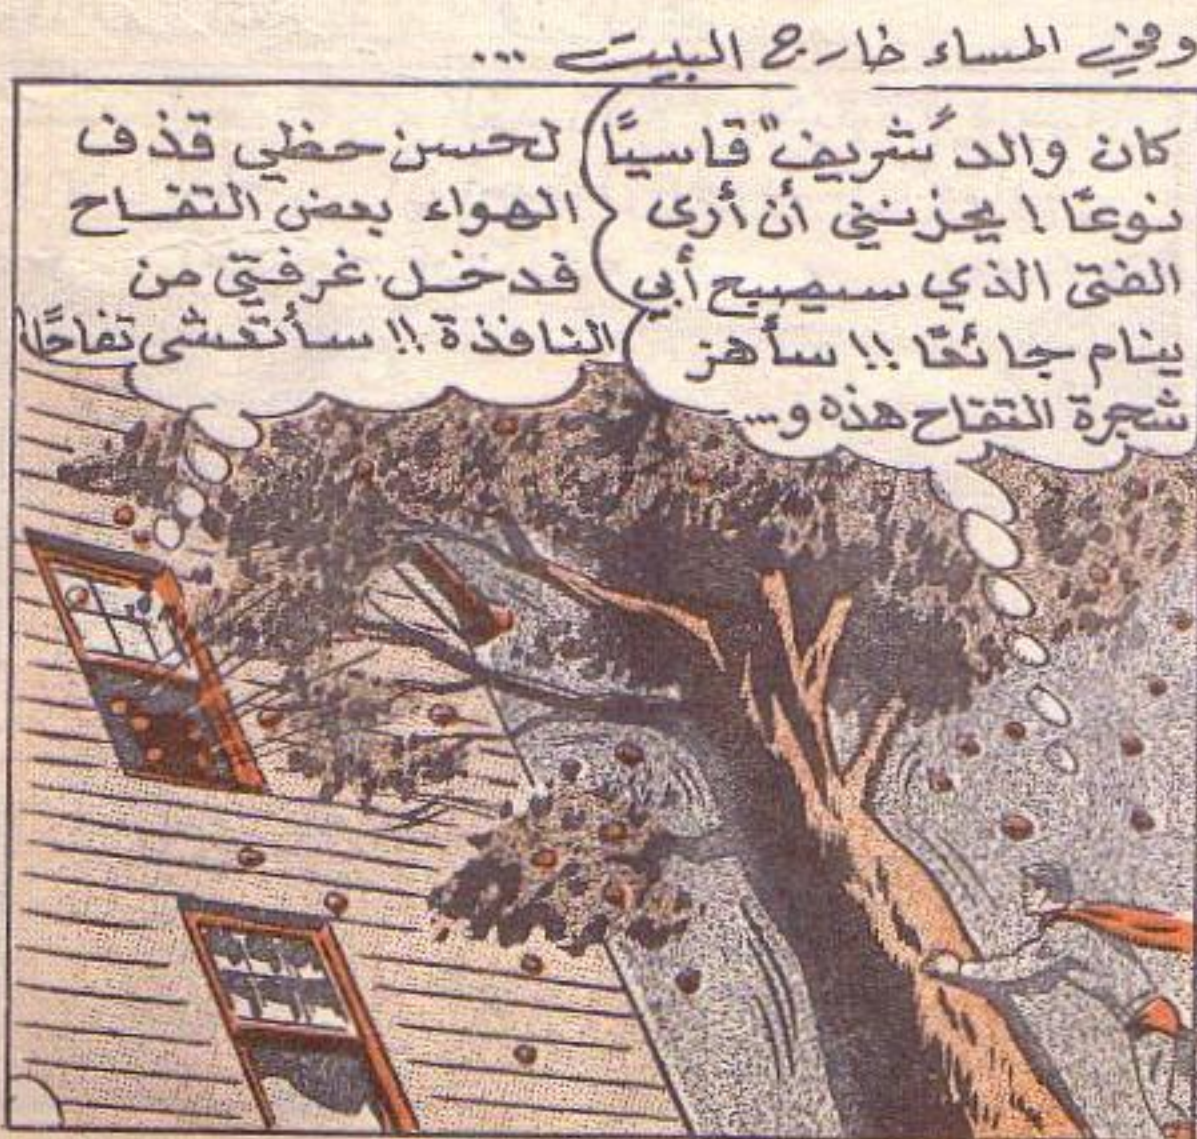 وفي المساء خارج البيت ...
كان والد "شريف" قاسيًا
نوعًا ! يحزنني أن أرى
الفتى الذي سيصبح أبي
ينام جائعًا !! سأهز
شجرة التفاح هذه و...
لحسن حظي قذف
الهواء بعض التفاح
فدخل غرفتي من
النافذة !! سأتعشى تفاحًا !